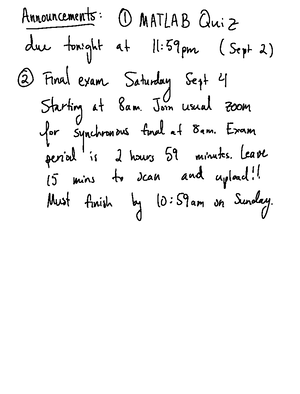 Announcements: ① MATLAB Quiz
due tonight at 11:59pm (Sept 2)
② Final exam Saturday Sept 4
Starting at 8am. Join usual zoom
for synchronous final at 8am. Exam
period is 2 hours 59 minutes. Leave
15 mins to scan and upload!!
Must finish by 10:59am on Sunday.